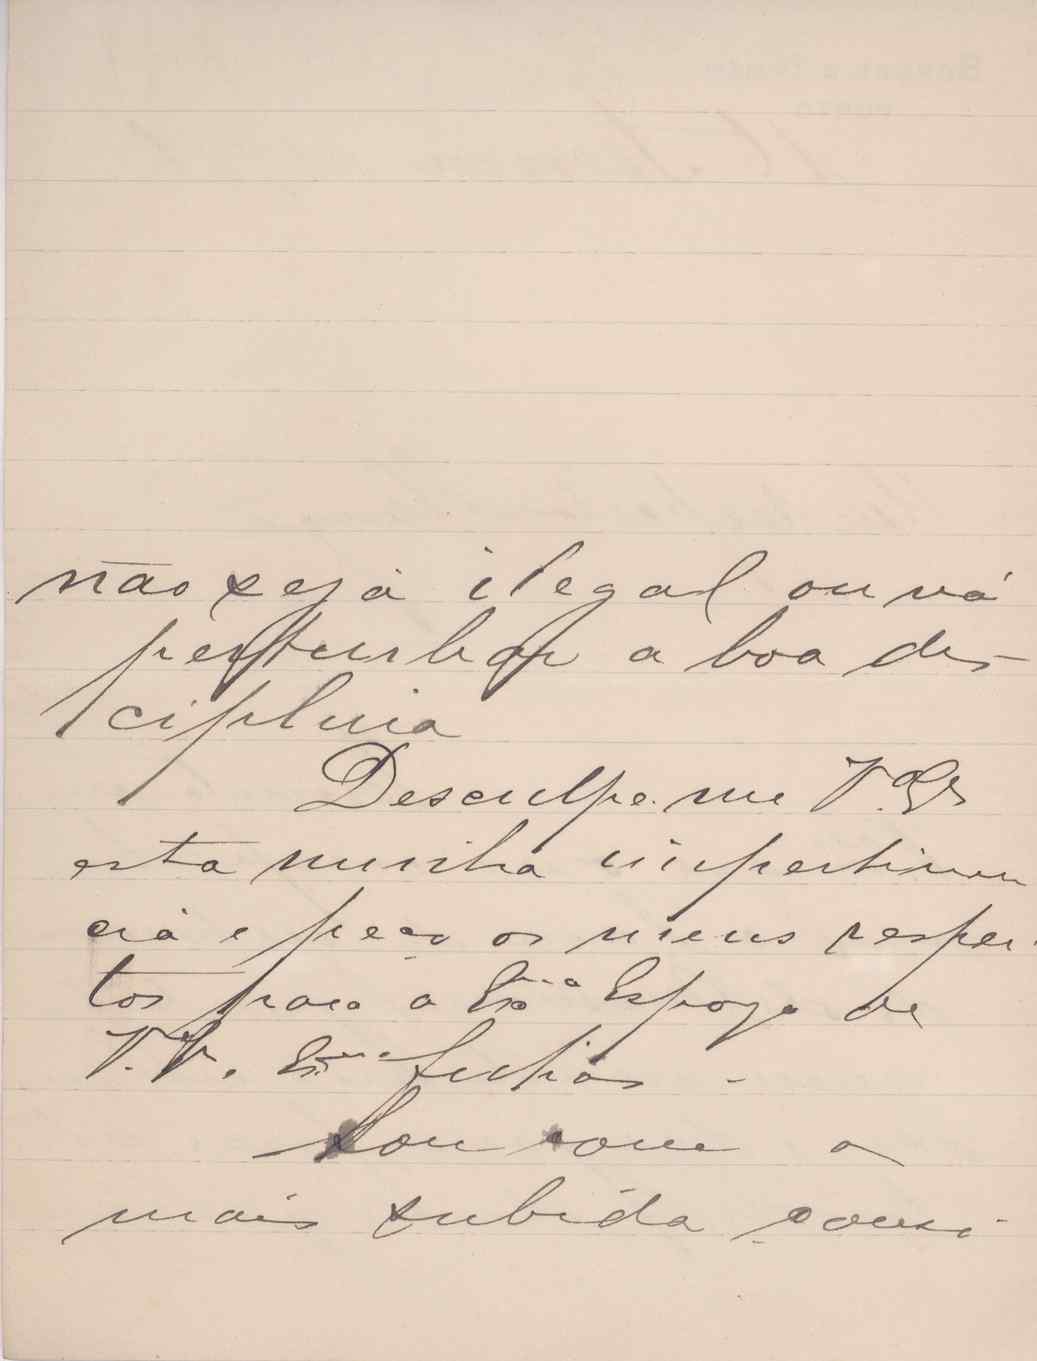 não seja ilegal ou vá
perturbar a boa dis-
ciplina
Desculpe-me V. Exª
esta minha impertinen
cia e peço os meus respei-
tos para a Exma Espoza de
V. Exma
Sou com a
mais subida consi